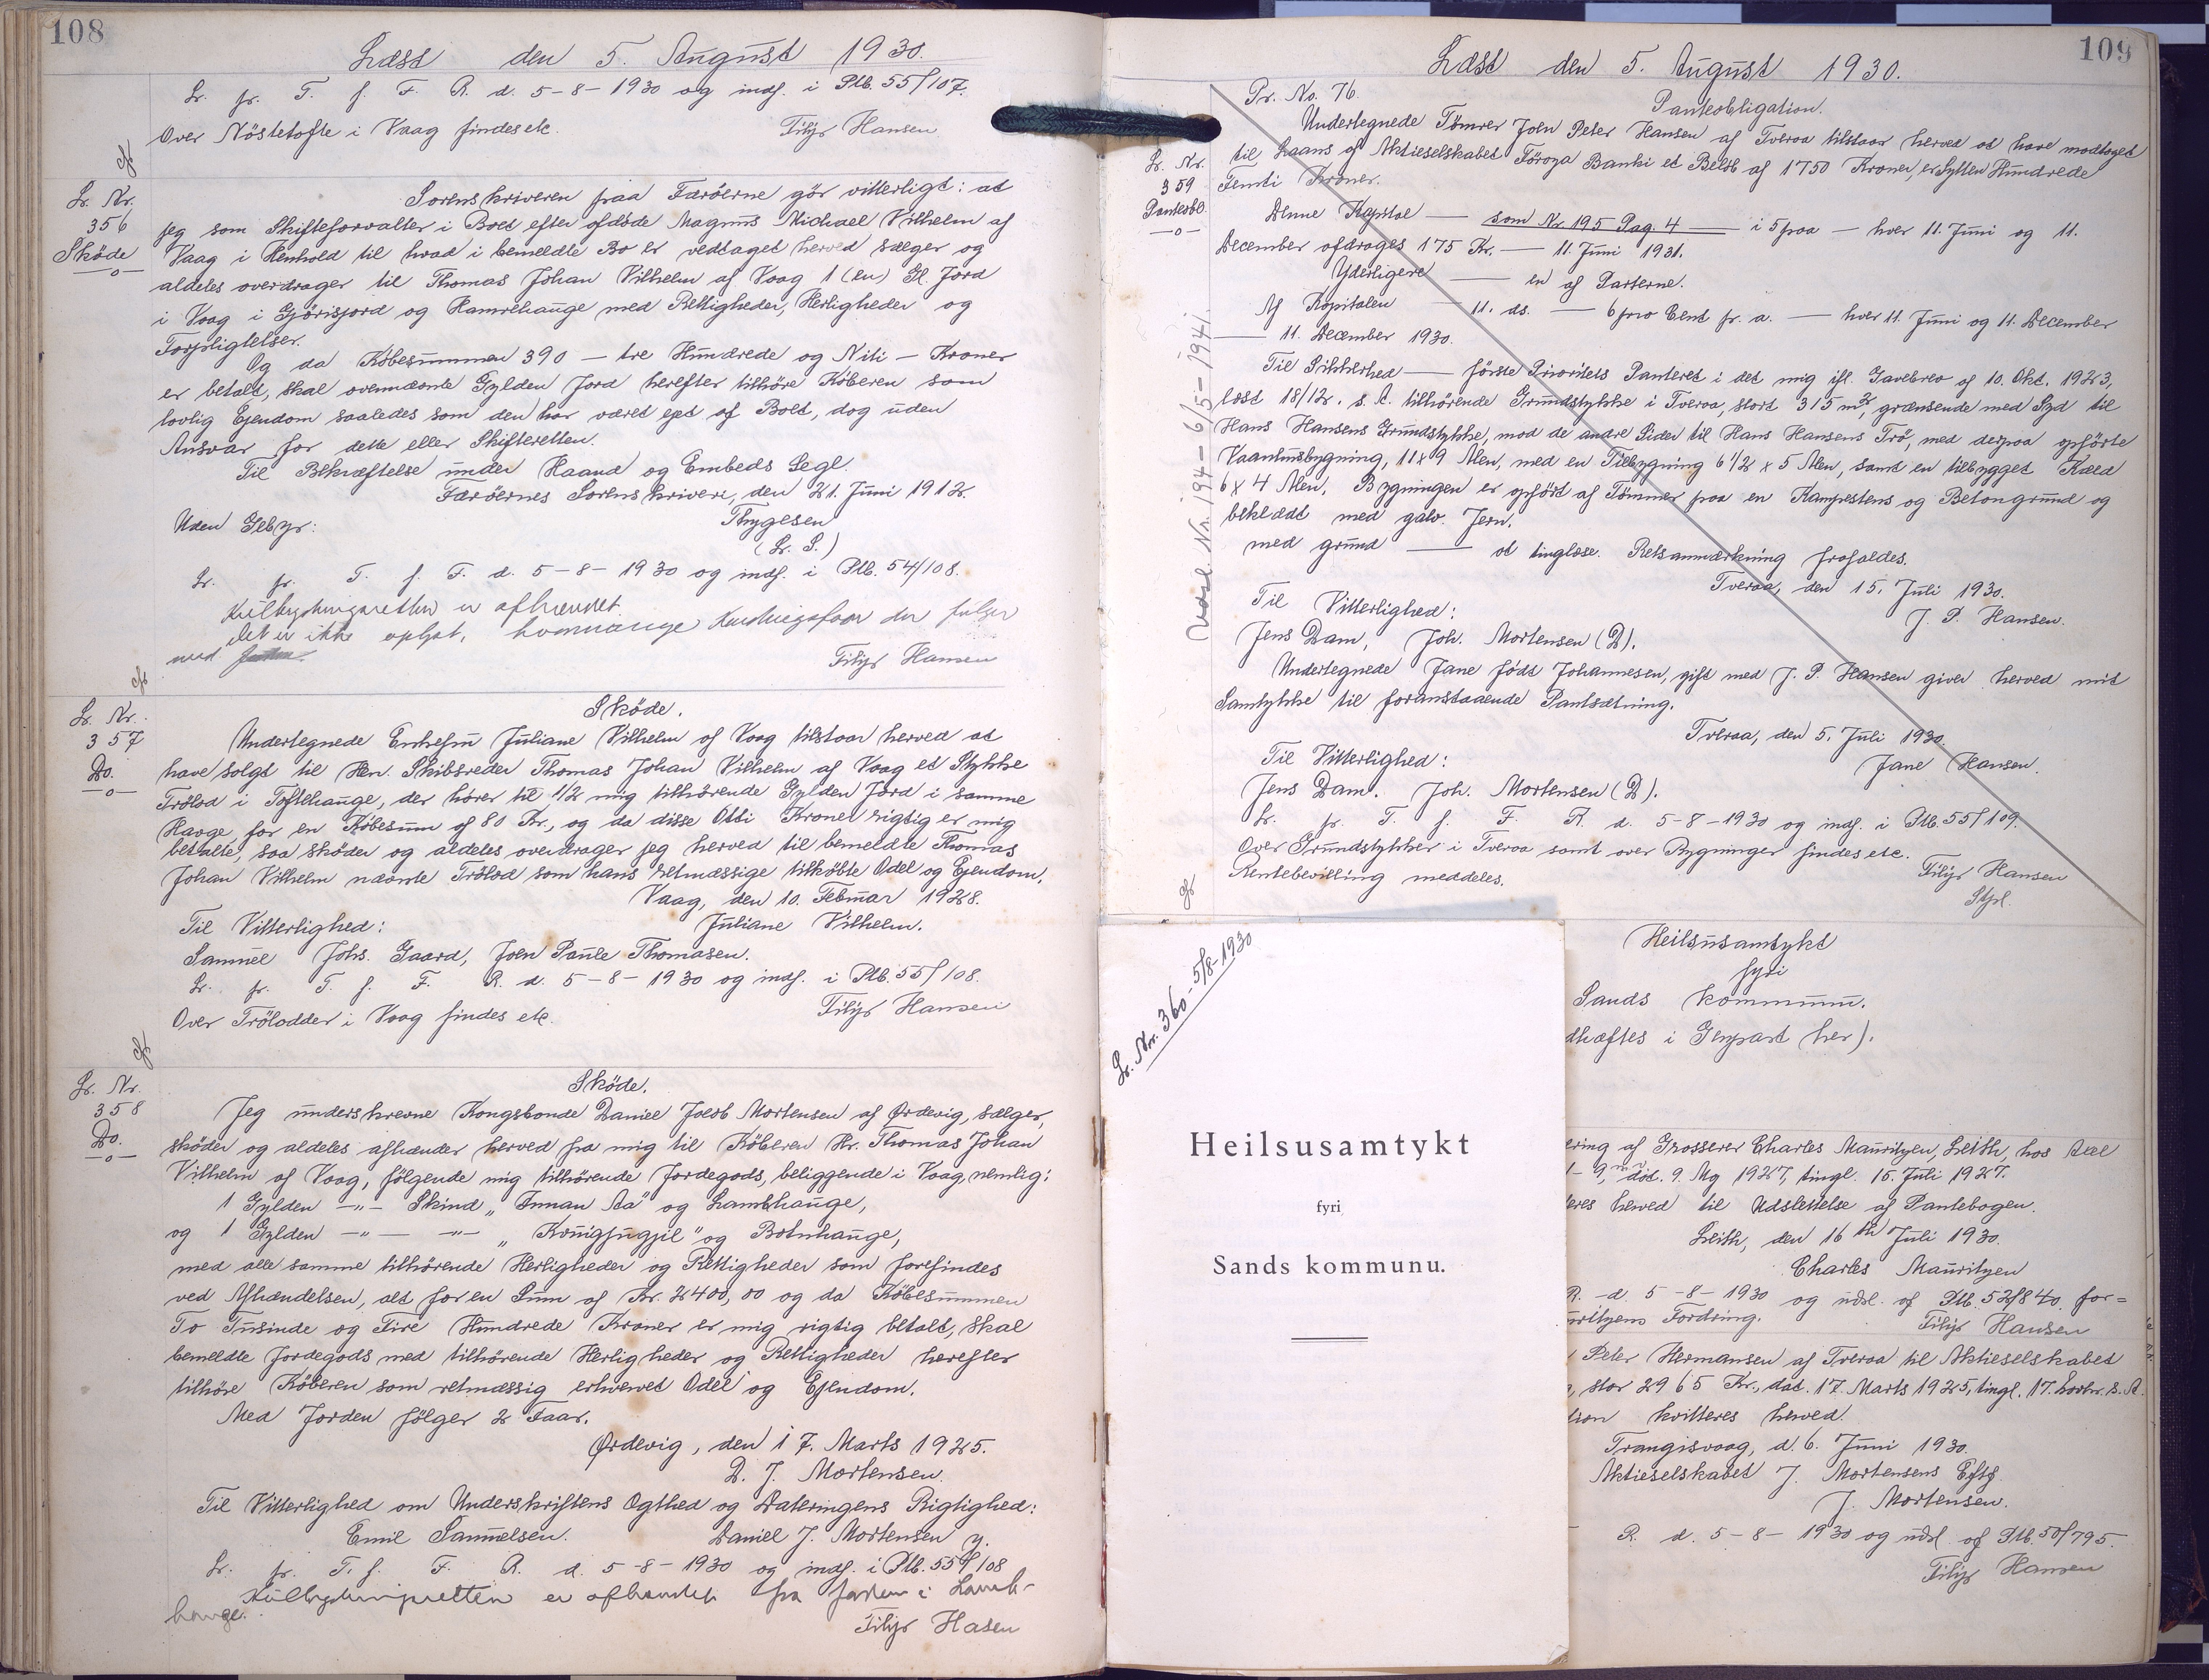 108
Læst den 5. August 1930.
Lr. fr. T. f. F. R. d. 5-8-1930 og indf. i Ptb. 55/107.
Over Nöstetofte i Vaag findes etc.
Filip Hansen
Lr. Nr.
356
Sköde
Sorenskriveren paa Færöerne gör vitterligt: at
jeg som Skifteforvalter i Boet efter afdöde Magnus Michael Vilhelm af
Vaag i Henhold til hvad i bemeldte Bo er vedtaget herved sælger og
aldeles overdrager til Thomas Johan Vilhelm af Vaag 1 (en) Gl. Jord
i Vaag i Gjörisjord og Hamrehauge med Rettigheder, Herligheder og
Forpligtelser.
Og da Köbesummen 390 — tre Hundrede og Niti — Kroner
er betalt, skal ovennævnte Gylden Jord herefter tilhöre Köberen som
lovlig Ejendom saaledes som den har været ejet af Boet, dog uden
Ansvar for dette eller Skifteretten.
Til Bekræftelse under Haand og Embeds Segl.
Færöernes Sorenskriveri, den 21. Juni 1912.
Uden Gebyr:
Thygesen
(L. S.)
Lr. fr. T. f. F. d. 5-8-1930 og indf. i Ptb. 54/108.
er afhændet.
det er ikke oplyst, hvormange der følger
med
Filip Hansen
Lr. Nr.
357
Do.
Sköde.
Undertegnede Enkefru Juliane Vilhelm af Vaag tilstaar herved at
have solgt til Hr. Skibsreder Thomas Johan Vilhelm af Vaag et Stykke
Trölod i Toftehauge, der hörer til 1/2 mig tilhörende Gylden Jord i samme
Hauge, for en Köbesum af 80 Kr., og da disse Otti Kroner rigtig er mig
betalte, saa sköder og aldeles overdrager jeg herved til bemeldte Thomas
Johan Vilhelm nævnte Trölod som hans retmæssige tilköbte Odel og Ejendom.
Vaag, den 10. Februar 1928.
Til Vitterlighed:
Juliane Vilhelm.
Samuel Johs. Gaard, Joen Paule Thomasen.
Lr. fr. T. f. F. R. d. 5-8-1930 og indf. i Ptb. 55/108.
Over Trölodder i Vaag findes etc.
Filip Hansen
Lr. Nr.
358
Do.
Sköde.
Jeg underskrevne Kongsbonde Daniel Jacob Mortensen af Ørdevig, sælger,
sköder og aldeles afhænder herved fra mig til Köberen Hr. Thomas Johan
Vilhelm af Vaag, fölgende mig tilhörende Jordegods, beliggende i Vaag, nemlig:
1 Gylden -"- Skind „Innan Aa" og Lambhauge,
og 1 Gylden -"- -"- og Botnhauge,
med alle samme tilhörende Herligheder og Rettigheder som forefindes
ved Afhændelsen, alt for en Sum af Kr. 2400,00 og da Köbesummen
To Tusinde og Fire Hundrede Kroner er mig rigtig betalt, skal
bemeldte Jordegods med tilhörende Herligheder og Rettigheder herefter
tilhöre Köberen som retmæssig erhvervet Odel og Ejendom.
Med Jorden fölger 2 Faar.
Ørdevig, den 17. Marts 1925.
D. J. Mortensen.
Til Vitterlighed om Underskriftens Ægthed og Dateringens Rigtighed:
Emil Samuelsen. Daniel J. Mortensen y.
Lr. fr. T. f. F. R. d. 5-8-1930 og indf. i Ptb. 55/108
er afhændet fra Jorden i Lamb-
hauge.
Filip Hasen
109
Læst den 5. August 1930.
Pr. No. 76.
Panteobligation.
Lr. Nr.
359
Panteobl.
Undertegnede Tömrer Joen Peter Hansen af Tveraa tilstaar herved at have modtaget
til Laans af Aktieselskabet Föroya Banki et Belöb af 1750 Kroner, er Sytten Hundrede
Femti Kroner.
Denne Kapital — som Nr. 195 Pag. 4 — i 5 paa — hver 11. Juni og 11.
December afdrages 175 Kr. — 11. Juni 1931.
Yderligere — en af Parterne.
Af Kapitalen — 11. ds. — 6 pro Cent pr. a. — hver 11. Juni og 11. December
— 11. December 1930.
Til Sikkerhed — förste Prioritets Panteret i det mig ifl. Gavebrev af 10. Okt. 1923,
læst 18/12. s. A. tilhörende Grundstykke i Tveraa, stort 315 m², grænsende med Syd til
Hans Hansens Grundstykke, mod de andre Sider til Hans Hansens Trö, med derpaa opförte
Vaaningsbygning, 11 x 9 Alen, med en Tilbygning 6 1/2 x 5 Alen, samt en tilbygget
6 x 4 Alen. Bygningen er opfört af Tömmer paa en Kampestens og Betongrund og
beklædt med galv. Jern.
med grund — at tinglæse. Retsanmærkning frafaldes.
Tveraa, den 15. Juli 1930.
Til Vitterlighed:
J. P. Hansen.
Jens Dam, Joh. Mortensen (D).
Undertegnede Jane födt Johannesen, gift med J. P. Hansen giver herved mit
Samtykke til foranstaaende Pantsætning.
Tveraa, den 5. Juli 1930.
Til Vitterlighed:
Jane Hansen.
Jens Dam. Joh. Mortensen (D).
Lr. fr. T. f. F. R. d. 5-8-1930 og indf. i Ptb. 55/109.
Over Grundstykker i Tveraa samt over Bygninger findes etc.
Rentebevilling meddeles.
Filip Hansen
Udsl. Nr. 194 - 6/5 - 1941.
Lr. Nr. 360 - 5/8-1930
Heilsusamtykt
fyri
Sands kommunu.
Heilsusamtykt
fyri
Sands kommunu.
dhæftes i Genpart her).
ering af Grosserer Charles Mauritzen, Leith, hos
dat. 9. Maj 1927, tingl. 15. Juli 1927.
eres herved til Udslettelse af Pantebogen.
Leith, den 16th Juli 1930.
Charles Mauritzen
R. d. 5-8-1930 og udsl. af Ptb. 52/840. for=
uritzens Fordring.
Filip Hansen
Peter Hermansen af Tveraa til Aktieselskabet
, stor 2965 Kr., dat. 17. Marts 1925, tingl. 17. s. A.
tion kvitteres herved.
Trangisvaag, d. 6. Juni 1930.
Aktieselskabet J. Mortensens Eftf.
J. Mortensen.
R. d. 5-8-1930 og udsl. af Ptb. 50/795.
Filip Hansen